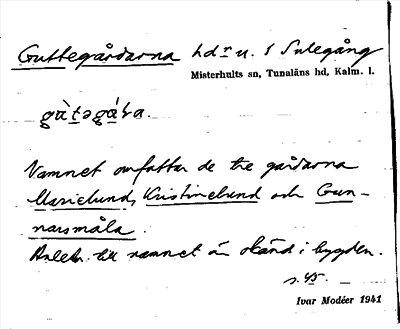 Guttegårdarna hdr u. S Sulegång
Misterhults sn, Tunaläns hd, Kalm. l.
Namnet omfattar de tre gårdarna
Marielund, Kristinelund och Gun-
narsmåla.
Anledn. till namnet är okänd i bygden.
s. 45.
Ivar Modéer 1941